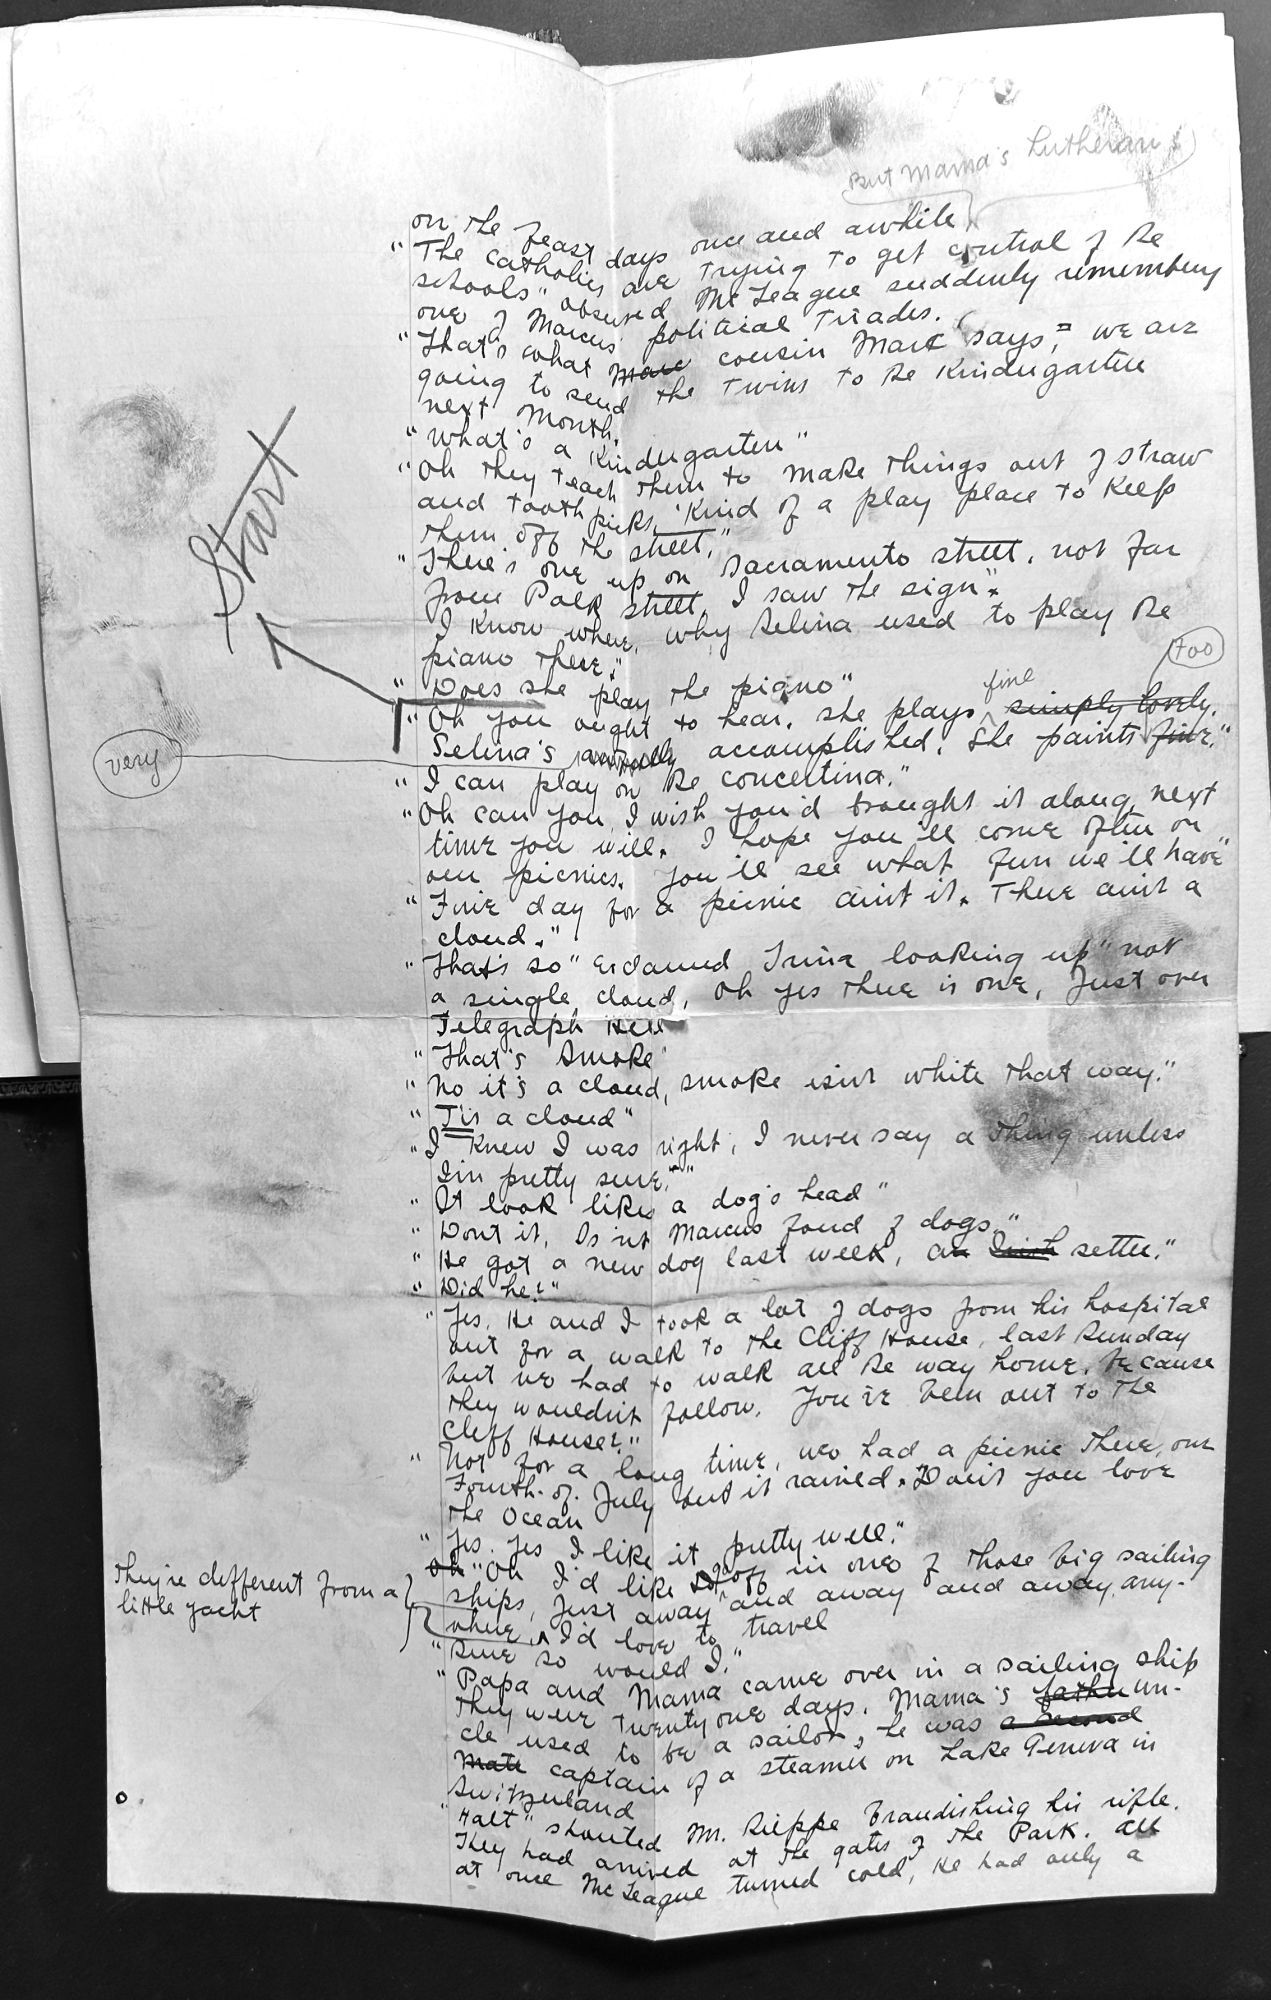 But Mama's Lutheran
on the feast days once and awhile
"The catholics are trying to get control of the
schools" observed McTeague suddenly remembering
one of Marcus' political tirades.
"That's what Marc cousin Mark says," we are
going to send the twins to the Kindergarten
next month."
"What's a Kindergarten"
"Oh they teach them to make things out of straw
and tooth picks, Kind of a play place to keep
them off the street."
"There's one up on Sacramento street, not far
from Polk street, I saw the sign".
I know where, why Selina used to play the
piano there."
Start
too
"Does she play the piano"
fine
"Oh you ought to hear. she plays simply lovely.
Selina's accomplished. She paints fine."
very
"I can play on the concertina."
"Oh can you, I wish you'd brought it along, next
time you will. I hope you'll come often on
our picnics. You'll see what fun we'll have"
"Fine day for a picnic aint it. There aint a
cloud."
"That's so" exclaimed Trina looking up "not
a single cloud, Oh yes there is one, Just over
Telegraph Hill
"That's Smoke"
"No it's a cloud, smoke isint white that way."
"Tis a cloud"
"I knew I was right, I never say a thing unless
I'm pretty sure."
"It look likes a dog's head"
"Dont it, Is'nt Marcus fond of dogs."
"He got a new dog last week, an Irish setter."
"Did he?"
"Yes, He and I took a lot of dogs from his hospital
out for a walk to the Cliff House, last Sunday
but we had to walk all the way home, because
they wouldn't follow. You've been out to the
Cliff House?"
"Not for a long time, we had a picnic there, one
Fourth. of. July but it rained. Don't you love
the Ocean
"Yes. Yes I like it pretty well."
Oh "Oh I'd like to go off in one of those big sailing
ships, Just away and away and away, any-
where. I'd love to travel
They're different from a
little yacht
"Sure so would I."
"Papa and Mama came over in a sailing ship
They were twenty one days. Mama's father un-
cle used to be a sailor, he was a second
mate captain of a steamer on Lake Geneva in
Switzerland
"Halt" shouted Mr. Sieppe brandishing his rifle.
They had arrived at the gates of the Park. All
at once McTeague turned cold, He had only a